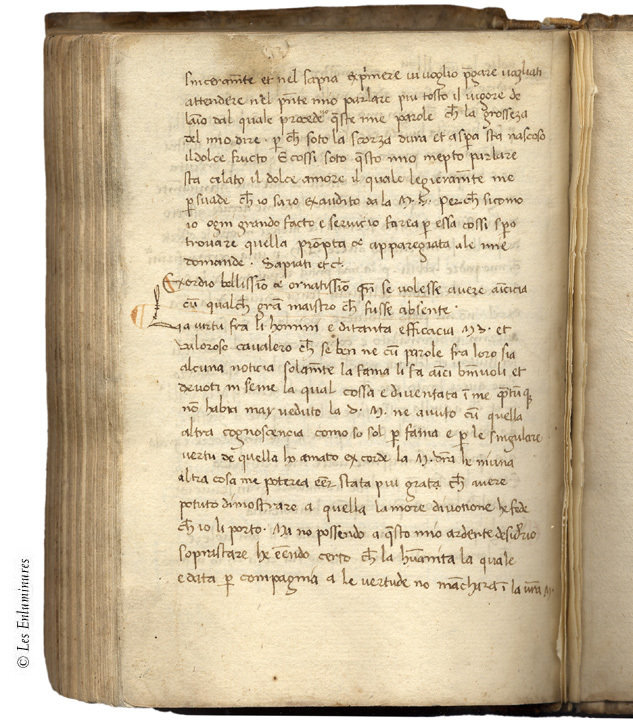 sinceramẽte et nel sapia exp̃imere vi voglio p̃gare vogliati
attendere nel p̃nte mio parlare piu tosto il vigore de
laĩo dal quale procede q̃ste mie parole ch̃ la grosseza
del mio dire · p̃ ch̃ soto la scorza dura et aspra sta nascoso
il dolce fructo E cossi soto q̃sto mio inepto parlare
sta celato il dolce amore il quale legieramẽte me
p̃suade ch̃ io saro exaudito da la M. Perch̃ sicomo
io ogni grando facto e servicio farea p̃ essa cossi spo
trouare quella prõpta & apparegiata ale mie
domande · Sapiati et c̃ ·
Exordio bellissiõ & ornatissiõ qñ se volesse auere amicicia
cũ qualch̃ grañ maistro ch̃ fusse absente ·
La virtu fra li homini e ditanta efficacia M. et
valoroso cavalero ch̃ se ben ne cũ parole fra loro sia
alcuna noticia solamẽte la fama li fa amici beniuoli et
deuoti insieme la qual cossa e diuentata ĩ me
nõ habia may veduto la v. M. ne auuto cũ quella
altra cognoscencia como so sol p̃ fama e p̃ le singulare
vertu de quella ho amato ex corde la M. vr̃a ne niuna
altra cosa me poterea eẽr stata piu grata ch̃ auere
potuto dimostrare a quella lamore diuotione he fede
ch̃ io li porto · Ma no possendo a q̃sto mio ardente desiderio
soprastare he eendo certo ch̃ la humanita la quale
e data p̃ compagnia a le vertude no mãchara ĩ la vr̃a M.
© Les Enluminures